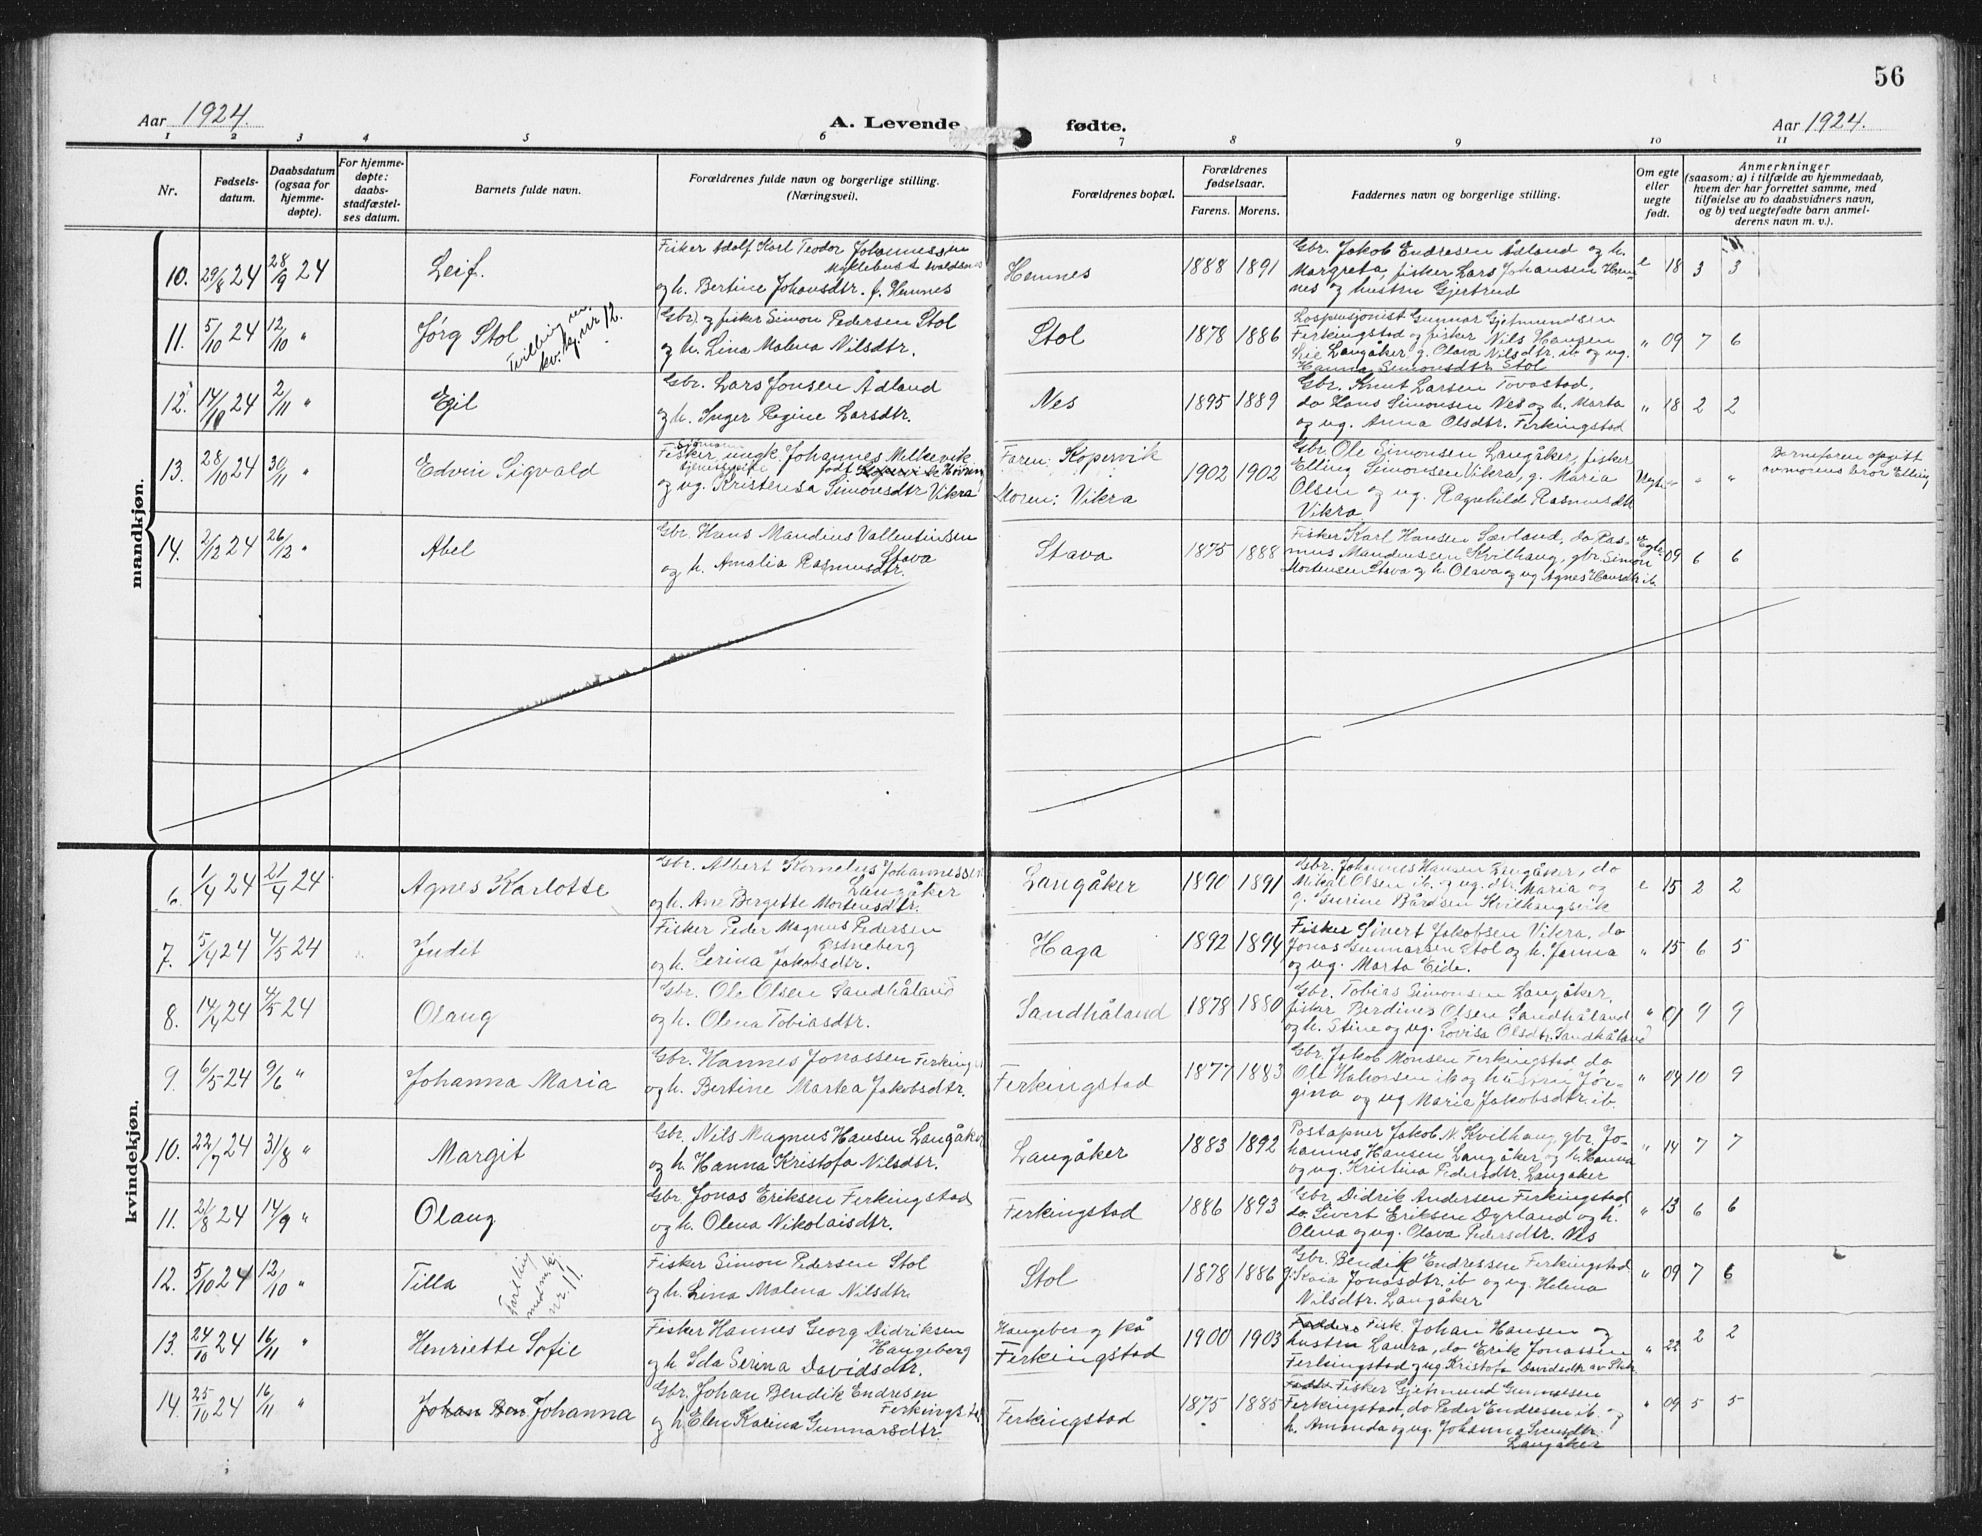 56
Aar 1924. A. Levende fødte. Aar 1924.
1 2 3 4 5 6 7 8 9 10 11
Nr.
Fødsels-
datum.
Daabsdatum
(ogsaa for
hjemme-
døpte).
For hjemme-
døpte:
daabs-
stadfæstel-
ses datum.
Barnets fulde navn.
Forældrenes fulde navn og borgerlige stilling.
(Næringsvei).
Forældrenes bopæl.
Forældrenes
fødselsaar.
Farens. Morens.
Faddernes navn og borgerlige stilling.
Om egte
eller
uegte
født.
Anmerkninger
(saasom: a) i tilfælde av hjemmedaab,
hvem der har forrettet samme, med
tilføielse av to daabsvidners navn,
og b) ved uegtefødte barn anmel-
derens navn m. v.).
mandkjøn.
10. 29/8 24 28/9 24 Leif.
Fisker Adolf Karl Teodor Johannessen
Myklebust
og h. Bertine Johansdtr. f. Hemnes
Hemnes 1888 1891
Gbr. Jakob Endresen Ådland og h.
Margreta, fisker Lars Johansen Hem-
nes og hustru Gjertrud
e 18 3 3
11. 5/10 24 12/10 " Jørg Stol
Tvilling m.
kv. kj. nr 12.
(Gbr) og fisker Simon Pedersen Stol
og h. Lina Malena Nilsdtr.
Stol 1878 1886
Gunnar Gjetmundsen
Ferkingstad og fisker Nils Hansen
Lie Langåker, g. Olava Nilsdtr. ib og ug.
Hanna Simonsdtr Stol
" 09 7 6
12. 14/10 24 2/11 " Egil
Gbr. Lars Jonsen Ådland
og h. Inger Regine Larsdtr.
Nes 1895 1889
Gbr. Knut Larsen Tovastad,
do Hans Simonsen Nes og h. Marta
og ug. Anna Olsdtr. Ferkingstad
" 18 2 2
13. 28/10 24 30/11 " Edvin Sigvald
Sjømann
Fisker, ungk. Johannes Melkevik
tjenestepike født
og ug. Kristensa Simonsdtr Vikra
Faren: Kopervik
Moren: Vikra
1902 1902
Gbr. Ole Simonsen Langåker, fisker
Elling Simonsen Vikra, g. Maria
Olsen og ug. Ragnhild Rasmusdtr
Vikra
Uegte " " "
Barnefaren opgitt
av morens bror Elling
14. 2/12 24 26/12 " Abel
Gbr. Hans Mandius Vallentinsen
Stava
og h. Amalia Rasmusdtr.
Stava 1875 1888
Fisker Karl Hansen Sævland, do Ras-
mus Mandiussen Kvilhaug, gbr. Simon
Mortensen Stava og h. Olava og ug Agnes Hansdtr ib.
Egte 09 6 6
kvindekjøn.
6. 1/4 24 21/4 24 Agnes Karlotte
Gbr. Albert Kornelius Johannessen
Langåker
og h. Ane Bergitte Mortensdtr.
Langåker 1890 1891
Gbr. Johannes Hansen Langåker, do
Mikal Olsen ib. og ug. dtr. Maria og
g. Gurine Bårdsen Kvilhaugsvik
e 15 2 2
7. 5/4 24 4/5 24 Judit
Fisker Peder Magnus Pedersen
Østneberg
og h. Serina Jakobsdtr.
Haga 1892 1894
Fisker Sivert Jakobsen Vikra, do
Jonas Gunnarsen Stol og h. Janna
og ug. Marta Eide.
" 15 6 5
8. 14/4 24 4/5 24 Olaug
Gbr. Ole Olsen Sandhåland
og h. Olena Tobiasdtr.
Sandhåland 1878 1880
Gbr. Tobias Simonsen Langåker,
fisker Berdines Olsen Sandhåland
og h. Stine og ug. Lovisa Olsdtr. Sandhåland
" 01 9 9
9. 6/5 24 9/6 " Johanna Maria
Gbr. Hannes Jonassen Ferkingst
og h. Bertine Martea Jakobsdtr.
Ferkingstad 1877 1883
Gbr. Jakob Monsen Ferkingstad, do
Ole Hahorsen ib og hustru Jør-
gina og ug Maria Jakobsdtr. ib.
" 04 10 9
10. 22/7 24 31/8 " Margit
Gbr. Nils Magnus Hansen Langåker
og h. Hanna Kristofa Nilsdtr.
Langåker 1883 1892
Postapner Jakob N. Kvilhaug, gbr. Jo-
hannes Hansen Langåker og h. Hanna
og ug. Kristina Pedersdtr. Langåker
" 14 7 7
11. 21/8 24 14/9 " Olaug
Gbr. Jonas Eriksen Ferkingstad
og h. Olena Nikolaisdtr.
Ferkingstad 1886 1893
Gbr. Didrik Andersen Ferkingstad,
do. Sivert Eriksen Dyrland og h.
Olena og ug. Olava Pedersdtr. Nes
" 13 6 6
12. 5/10 24 12/10 " Tilla
med m.kj
nr. 11.
Fisker Simon Pedersen Stol
og h. Lina Malena Nilsdtr.
Stol 1878 1886
Gbr. Bendik Endressen Ferkingstad
g. Kaia Jonasdtr. ib og ug. Helena
Nilsdtr. Langåker
" 09 7 6
13. 24/10 24 16/11 " Henriette Sofie
Fisker Hannes Georg Didriksen
Haugeberg
og h Ida Serina Davidsdtr.
Haugeberg på
Ferkingstad
1900 1903
Faddere Fisk. Johan Hansen og
hustru Laura, do Erik Jonassen
Ferkingstad og ug. Kristofa Davidsdtr av
" 22 2 2
14. 25/10 24 16/11 " Johan Ben Johanna
Gbr. Johan Bendik Endresen
Ferkingstad
og h Elen Karina Gunnarsdtr.
Ferkingstad 1875 1885
Fisker Gjetmund Gunnarsen
Ferkingstad, do Peder Endresen ib. og
h. Amanda og ug. Johanna Svensdtr.
Langåker
" 09 5 5